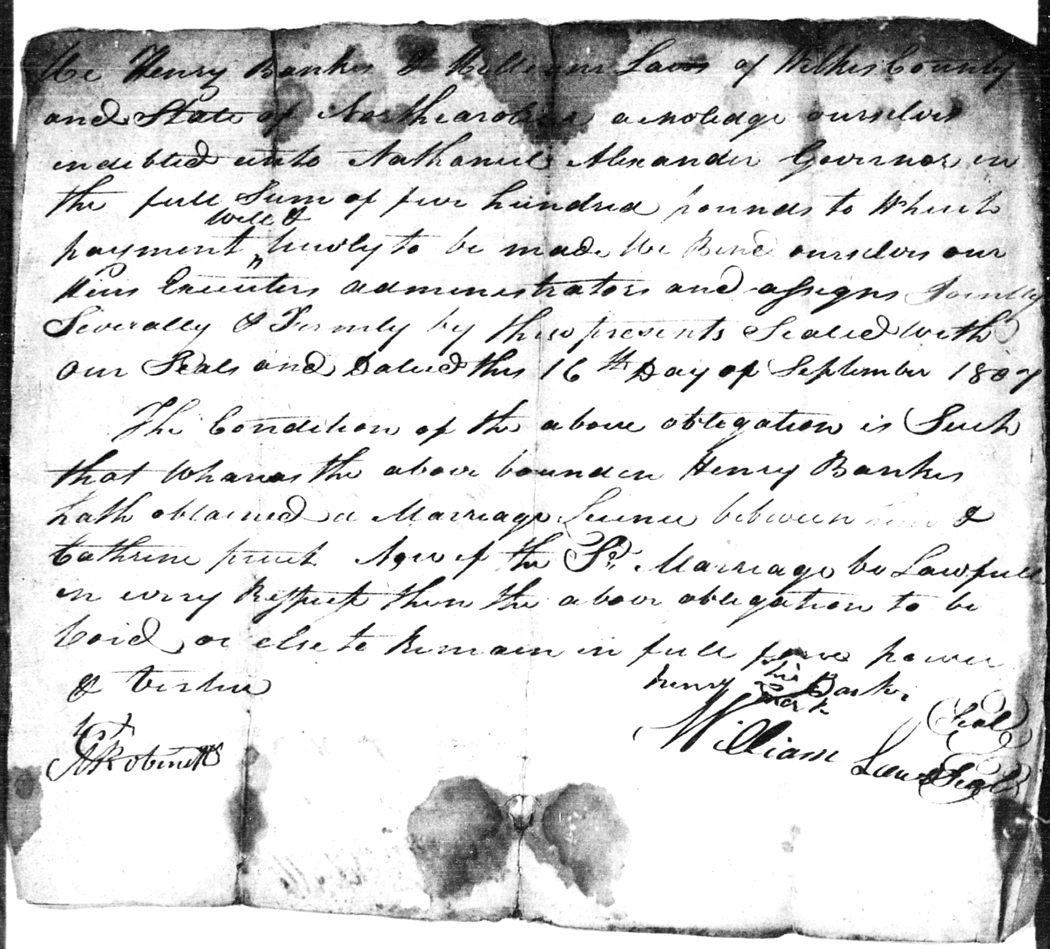 We Henry Bankes & William Laws of Wilkes County
and State of Northcarolina acnoledge ourselves
indebted unto Nathaniel Alexander Governor in
the full Sum of five hundred pounds to Which
Well &
payment truly to be made We Bind ourselves our
Heirs Executers administrators and assigns Jointly
Severally & Firmly by these presents Sealed With
Our Seals and Dated this 16th Day of September 1807
The Condition of the above obligation is Such
that Whareas the above bounden Henry Bankes
hath obtained a Marriage Licence between him &
Cathrine Now if the Sd. Marriage be Lawfull
in every Respect then the above obligation to be
Void or else to Remain in full force power
& Virtue
his
Henry Bankes
mark
Seal
Test
A Robinett
William Laws Seal